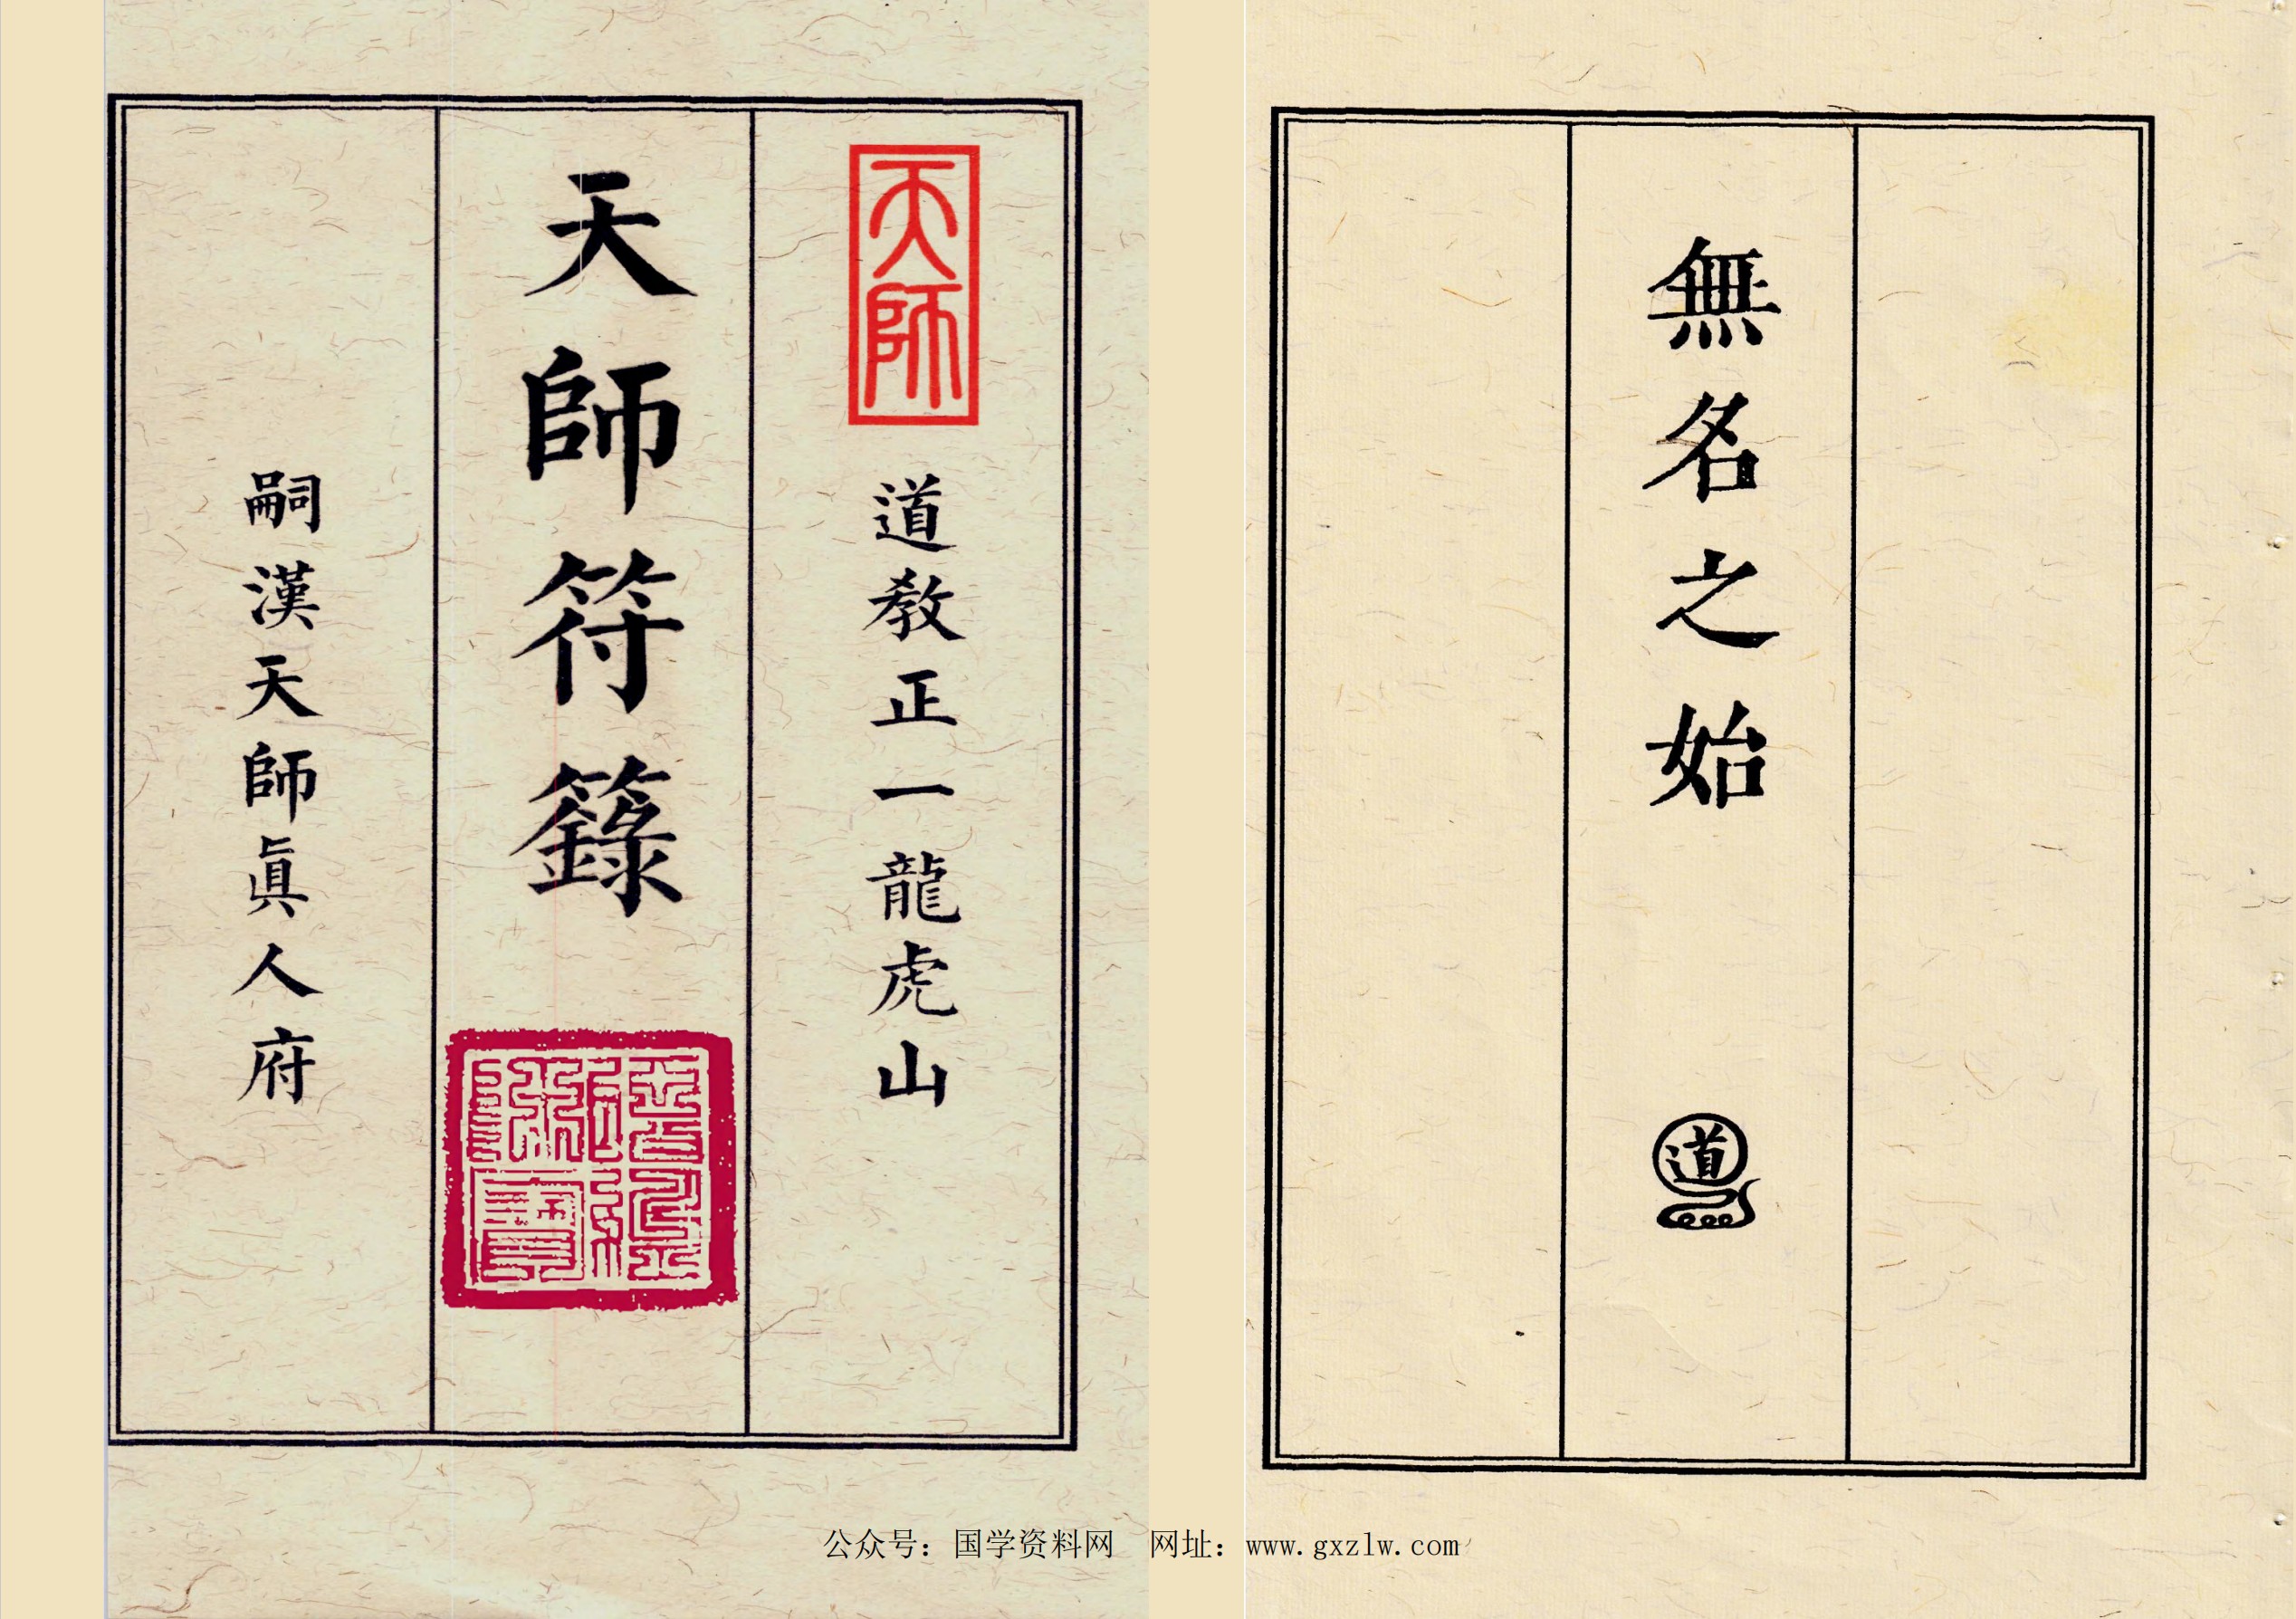 無名之始
道
天師
道教正一龍虎山
天師符籙
嗣漢天師眞人府
公众号：国学资料网　网址：www.gxzlw.com